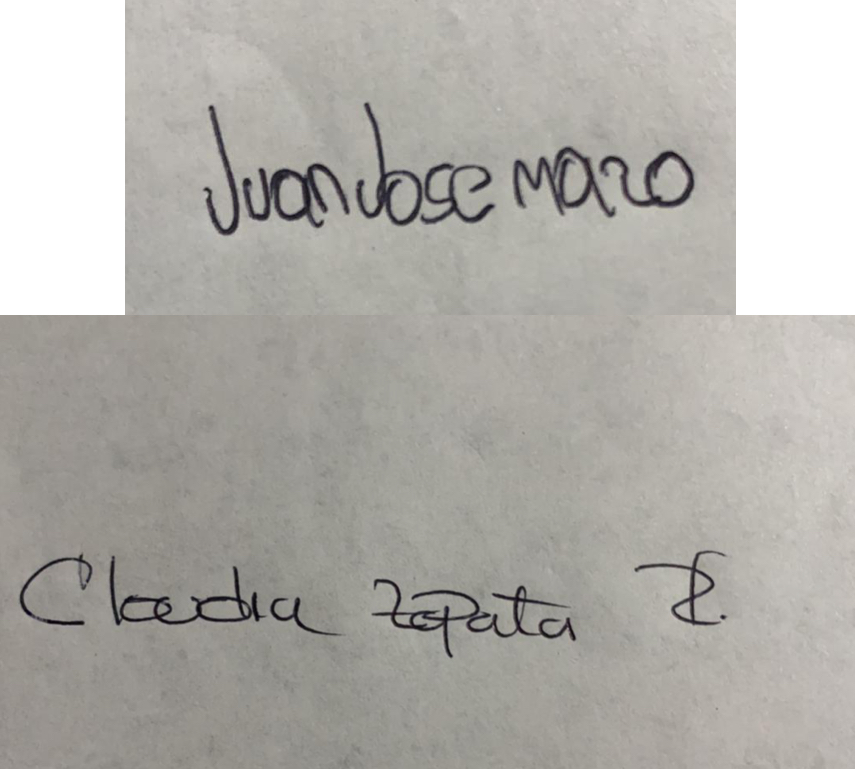 Juan Jose mazo
Claudia Zapata R.